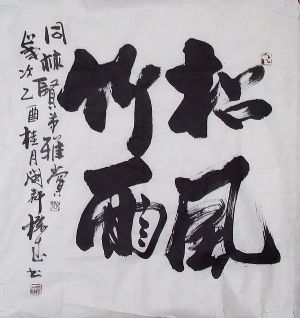 松風
竹雨
同林賢弟雅賞
歲次乙酉桂月閩都